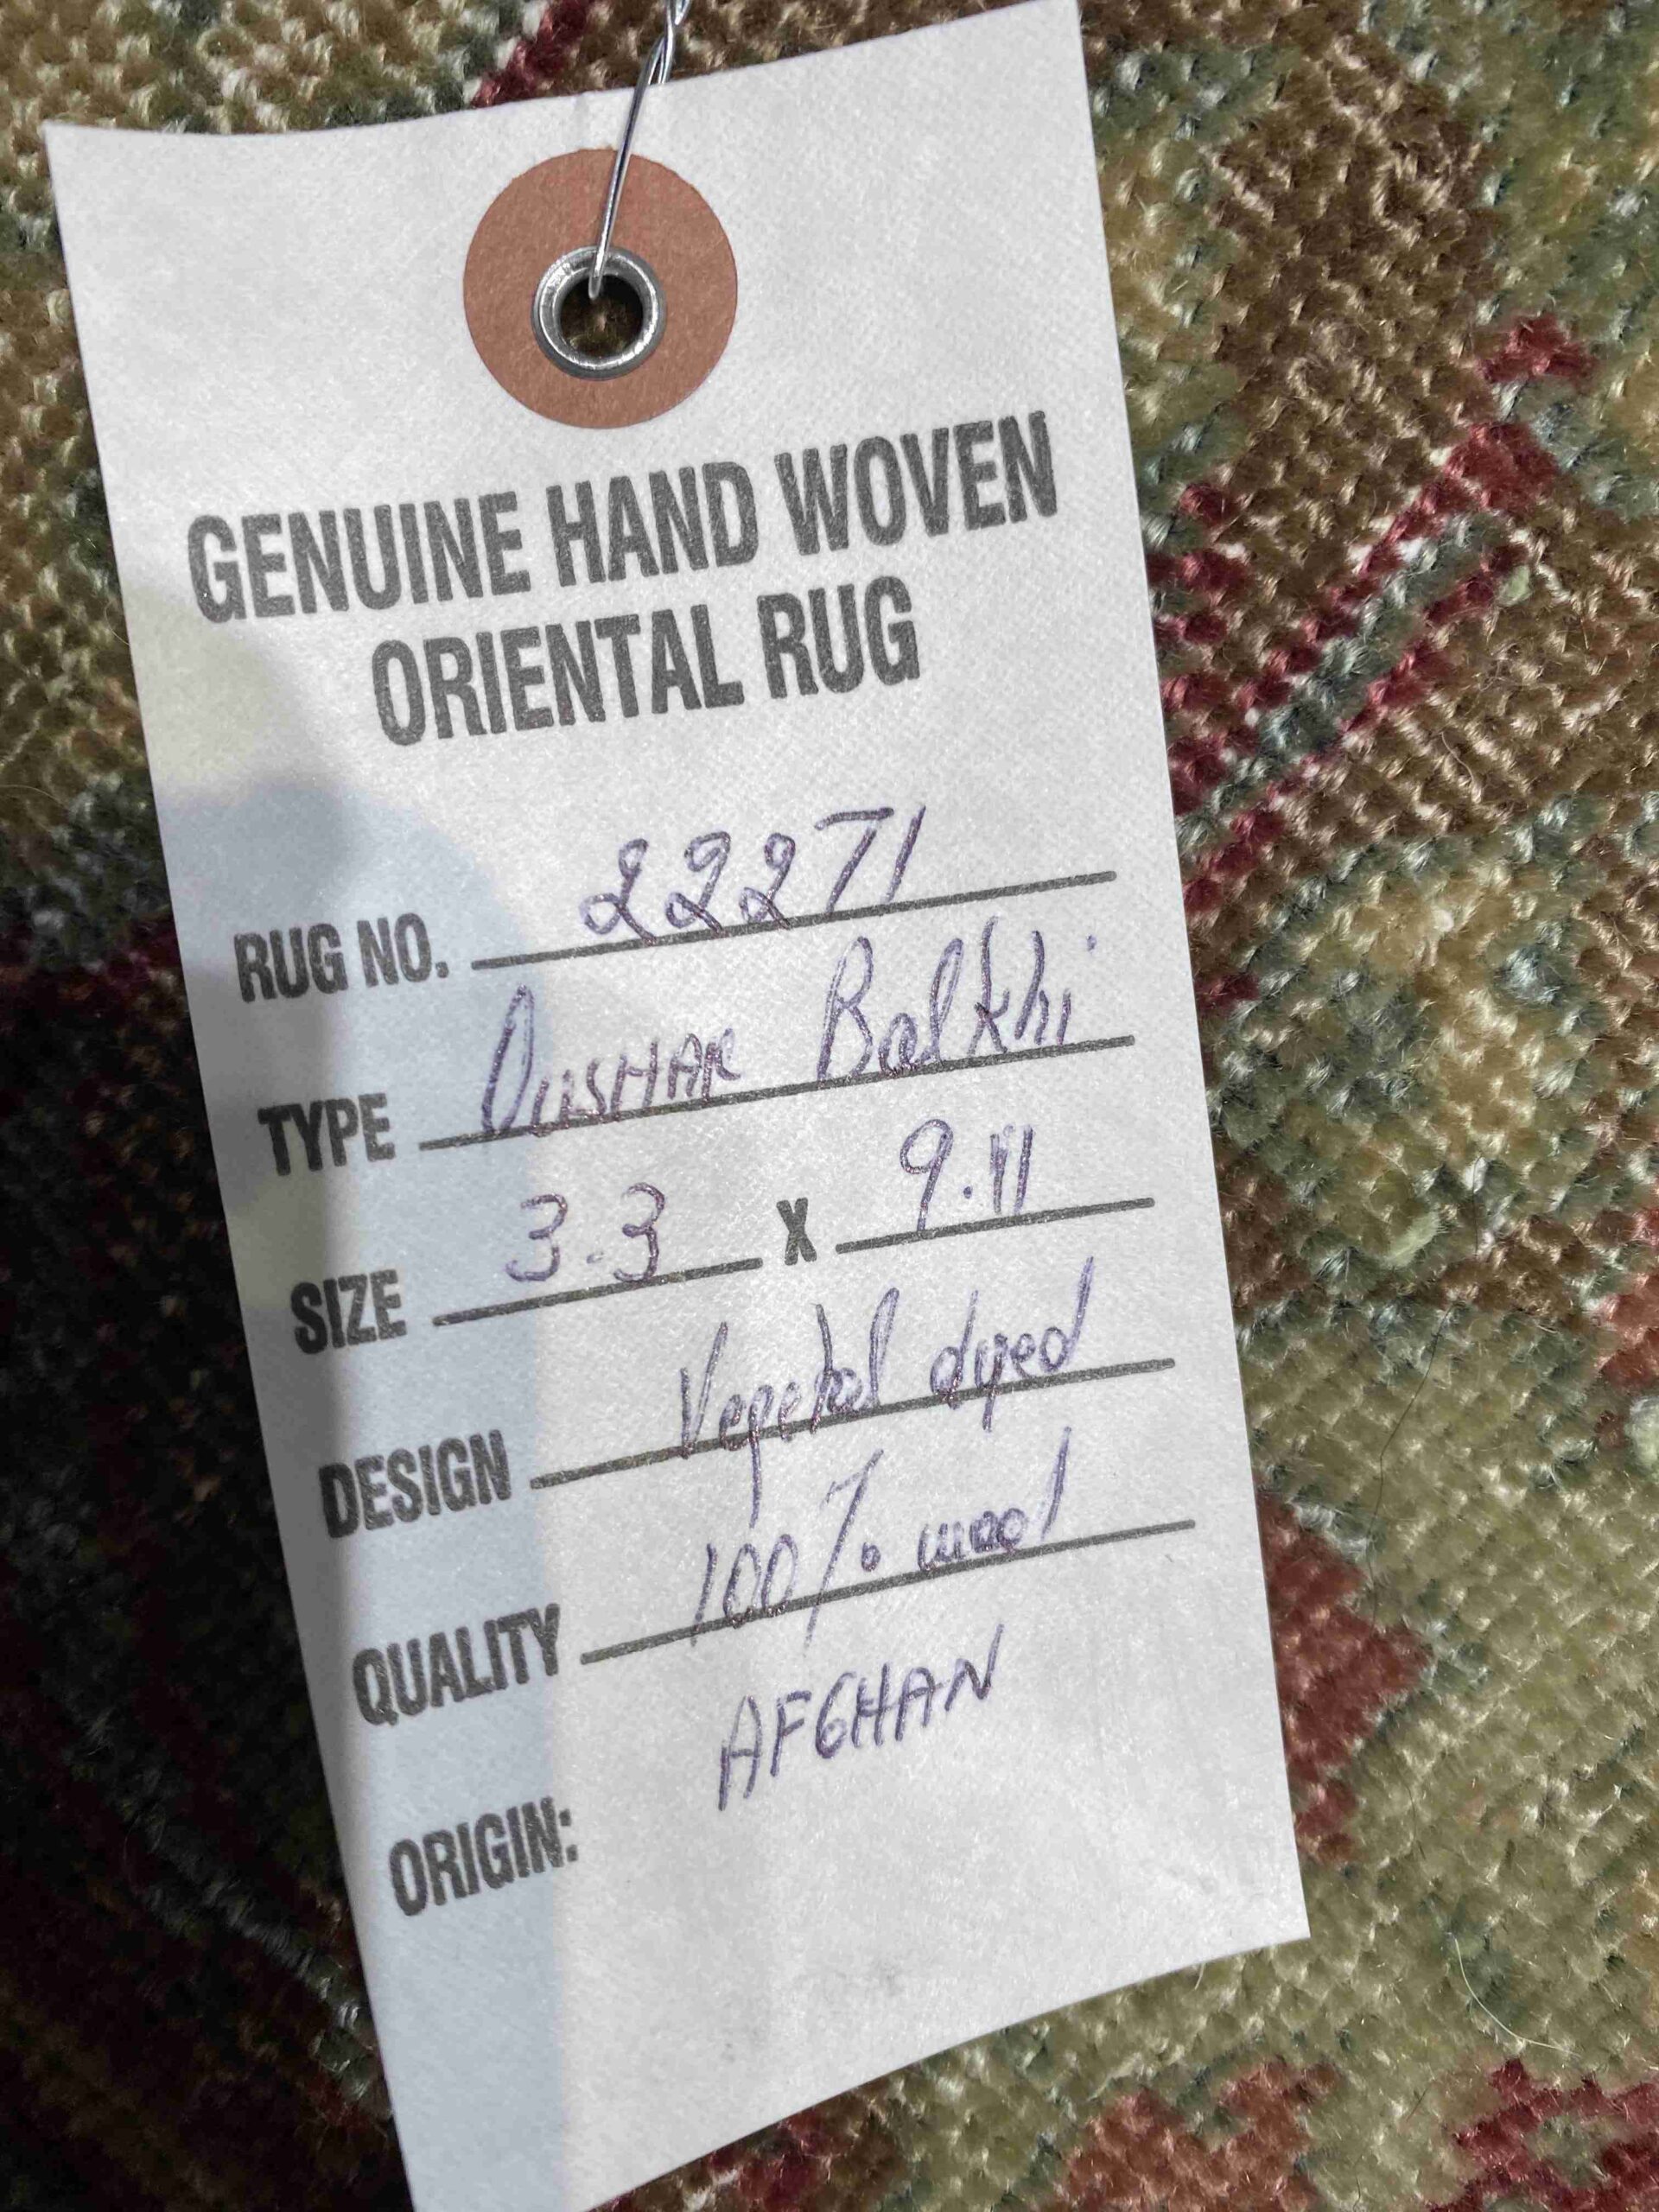 GENUINE HAND WOVEN
ORIENTAL RUG
RUG NO. 22271
TYPE OUSHAR Balkhi
SIZE 3.3 X 9.11
DESIGN Vegetal dyed
QUALITY 100% wool
ORIGIN: AFGHAN